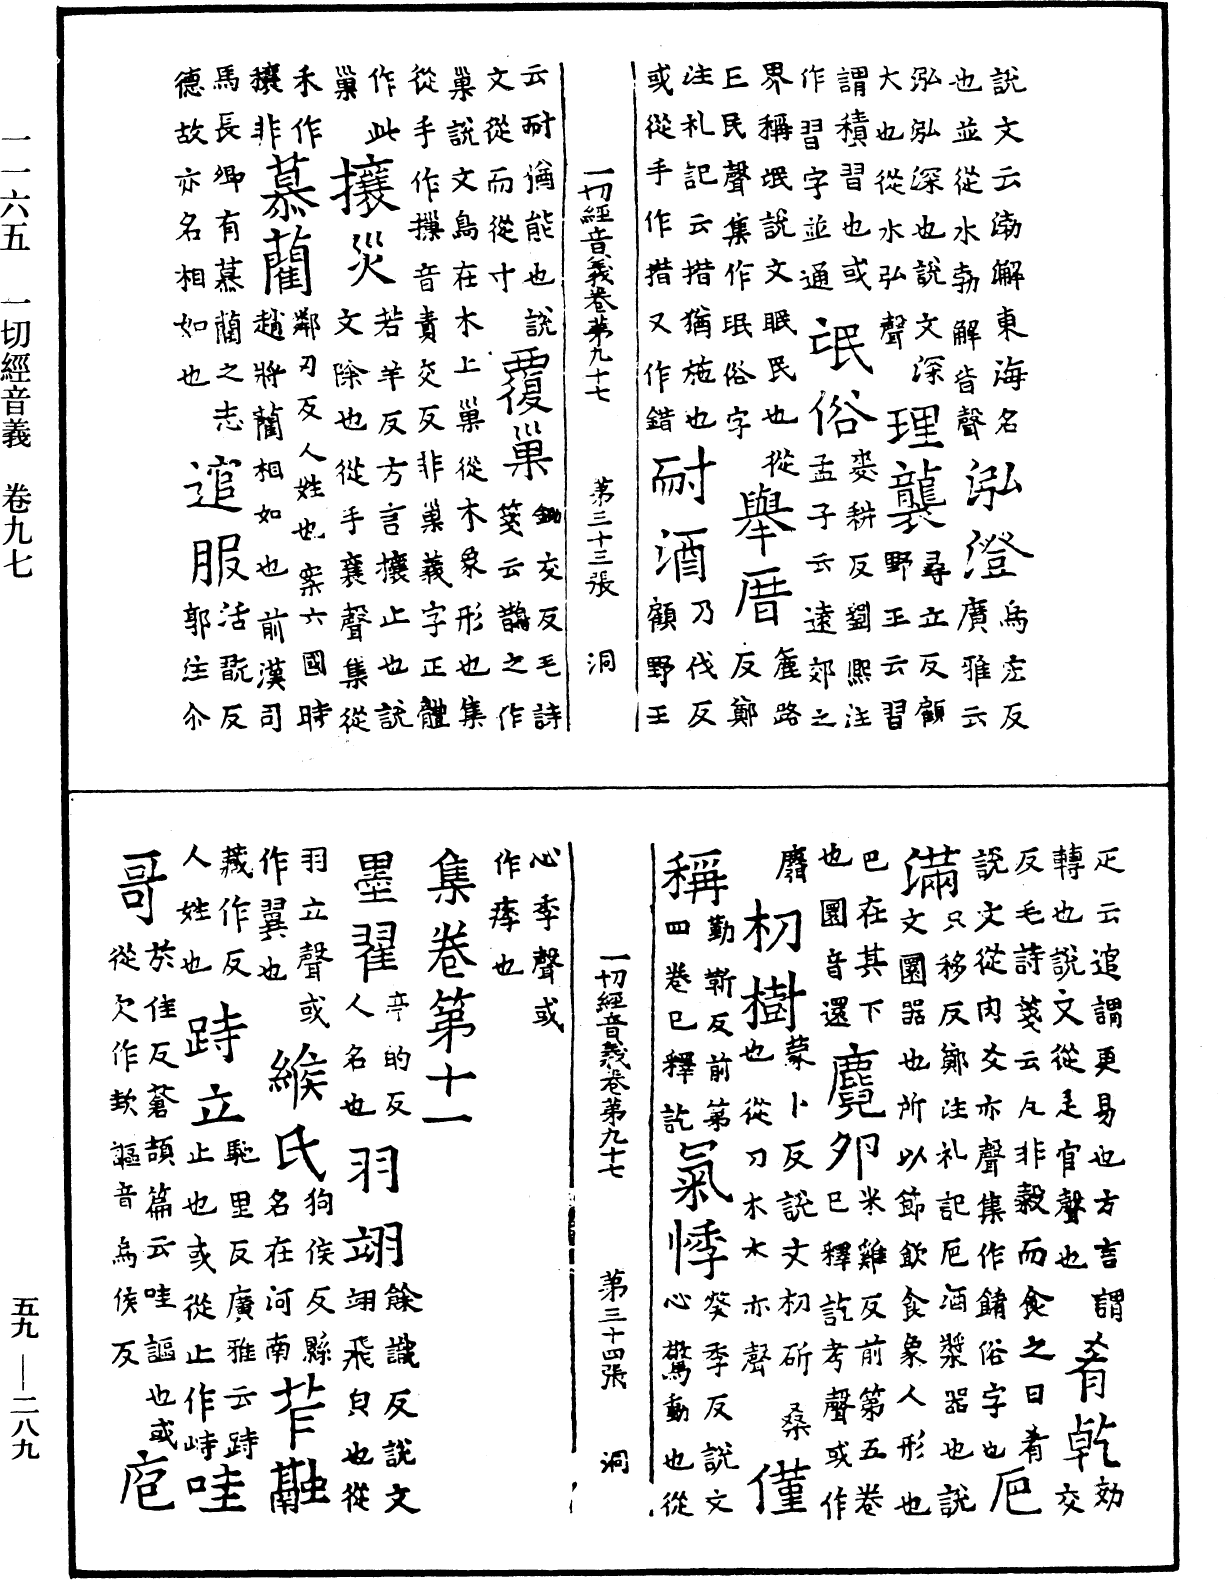 說文云渤澥東海名
也並從水勃解皆聲
泓澄
烏宏反
廣雅云
泓泓深也說文深
大也從水弘聲
理襲
尋立反顧
野王云習
謂積習也或
作習字並通
氓俗
麥耕反劉熙注
孟子云遠郊之
界稱氓說文眠民也從
王民聲集作珉俗字
舉厝
麁路
反鄭
注札記云措猶施也
或從手作措又作錯
耐酒
乃伐反
顧野王
一切經音義卷第九十七 第三十三張 洞
云耐猶能也說
文從而從寸
覆巢
鋤交反毛詩
箋云鵲之作
巢說文鳥在木上巢從木象形也集
從手作摷音責交反非巢義字正體
作此
巢
攘災
若羊反方言攘止也說
文除也從手襄聲集從
禾作
穰非
慕藺
鄰刃反人姓也案六國時
趙將藺相如也前漢司
馬長卿有慕藺之志
德故亦名相如也
逭服
活翫反
郭注尒
疋云逭謂更易也方言謂
轉也說文從辵官聲也
肴乾
効
交
反毛詩箋云凡非穀而食之曰肴
說文從肉爻亦聲集作餚俗字也
卮
滿
只移反鄭注札記卮酒漿器也說
文圜器也所以節飲食象人形也
巴在其下
也圜音還
麑夘
米雞反前第五卷
巳釋訖考聲或作
麛
朷樹
蒙卜反說文朷斫
也從刀木木亦聲
桑
僅
稱
勤靳反前第
四卷巳釋訖
氣悸
癸季反說文
心驚動也從
一切經音義卷第九十七 第三十四張 洞
心季聲或
作痵也
集卷第十一
墨翟
亭的反
人名也
羽翊
餘識反說文
翊飛皃也從
羽立聲或
作翼也
緱氏
狗侯反縣
名在河南
苲融
藏作反
人姓也
跱立
馳里反廣雅云跱
止也或從止作峙
哇
哥
於佳反蒼頡篇云哇謳也或
從欠作欸謳音烏侯反
庖
一一六五 一切經音義 卷九七
五九—二八九